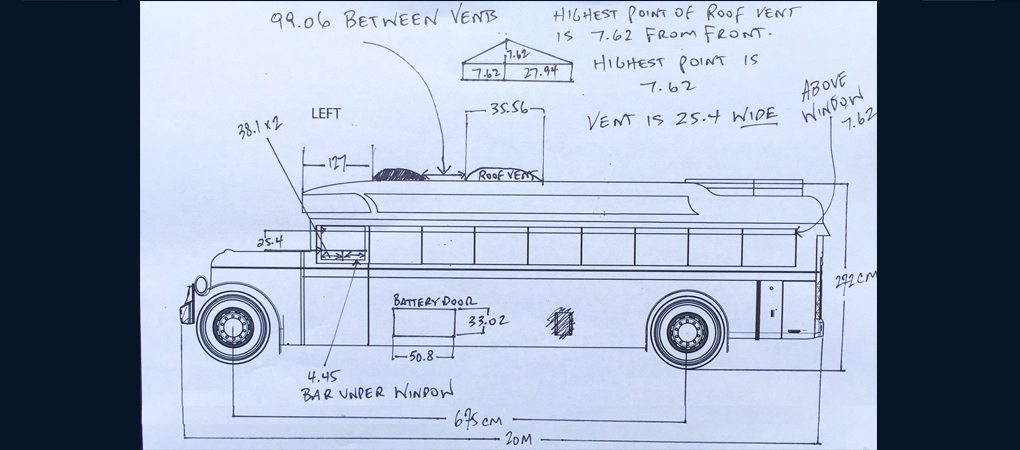 99.06 BETWEEN VENTS
HIGHEST POINT OF ROOF VENT
IS 7.62 FROM FRONT.
HIGHEST POINT IS
7.62
7.62
7.62 27.94
VENT IS 25.4 WIDE
ABOVE
WINDOW
7.62
35.56
LEFT
38.1 x 2
127
ROOF VENT
25.4
BATTERY DOOR
33.02
50.8
4.45
BAR UNDER WINDOW
675 CM
20M